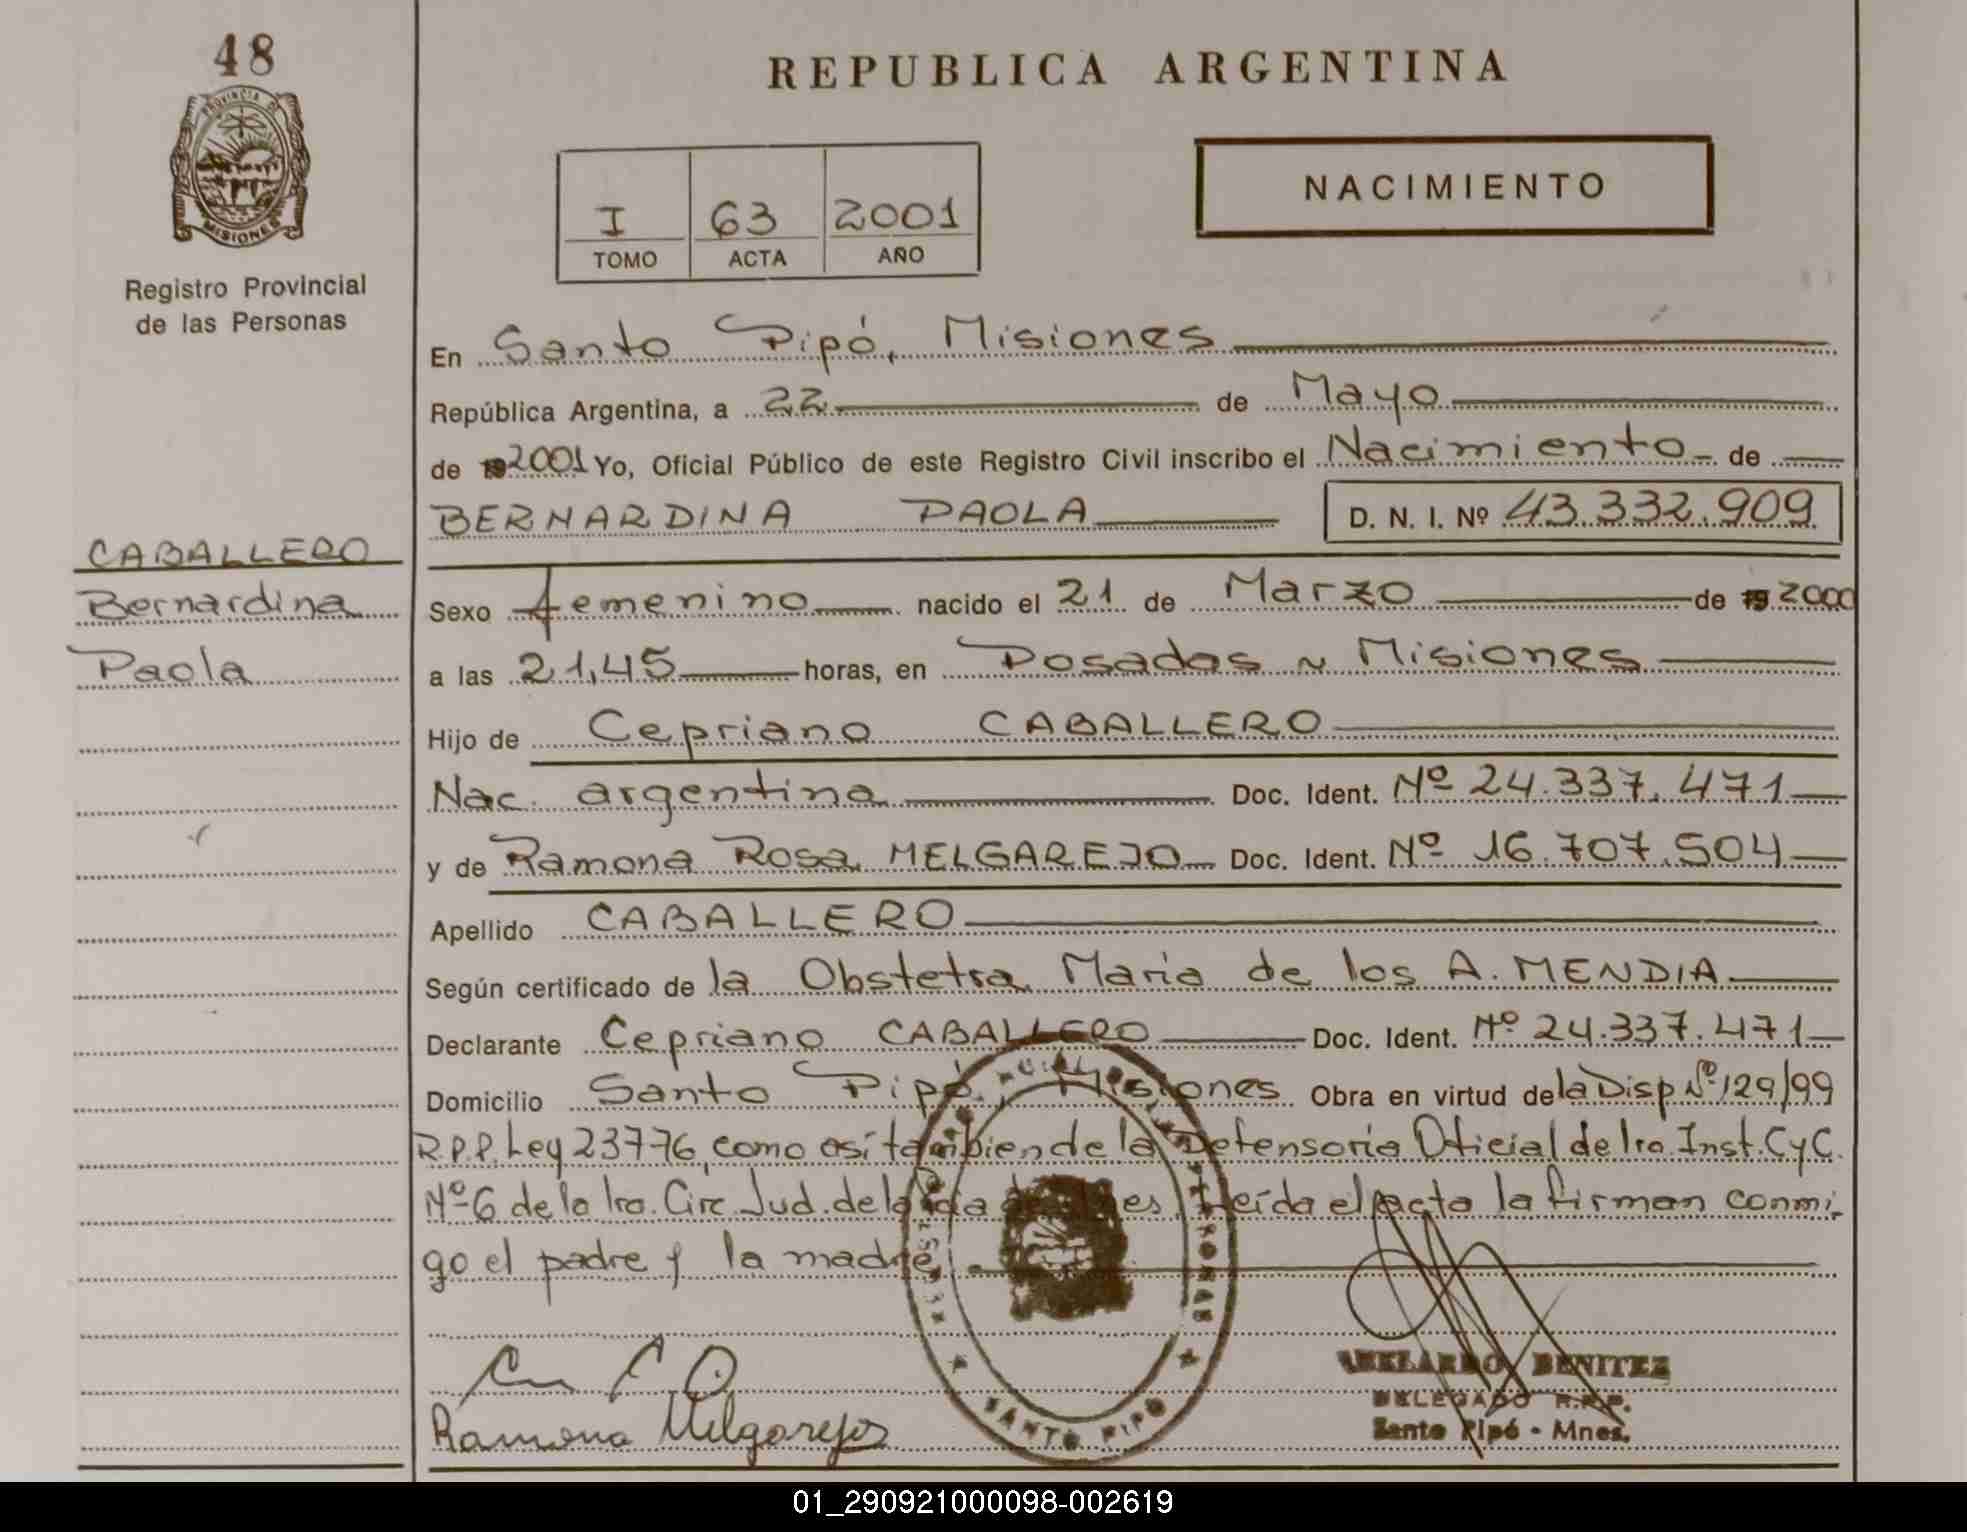 48
PROVINCIA DE
MISIONES
Registro Provincial
de las Personas
CABALLERO
Bernardina
Paola
REPUBLICA ARGENTINA
I 63 2001
TOMO ACTA AÑO
NACIMIENTO
En Santo Pipó, Misiones
República Argentina, a 22 de Mayo
de 192001 Yo, Oficial Público de este Registro Civil inscribo el Nacimiento de
BERNARDINA PAOLA D. N. I. Nº 43.332.909
Sexo femenino nacido el 21 de Marzo de 19 2000
a las 21,45 horas, en Posadas ~ Misiones
Hijo de Cepriano CABALLERO
Nac. argentina Doc. Ident. Nº 24.337.471
y de Ramona Rosa MELGAREJO Doc. Ident. Nº 16.707.504
Apellido CABALLERO
Según certificado de la Obstetra Maria de los A. MENDIA
Declarante Cepriano CABALLERO Doc. Ident. Nº 24.337.471
Domicilio Santo Pipó, Misiones Obra en virtud de la Disp Nº 129/99
R.P.P. Ley 23776, como así tambien de la Defensoria Oficial de 1ra. Inst. C y C.
Nº 6 de la 1ra. Circ. Jud. de la Leída el acta la firman conmi-
go el padre y la madre.
Ramona Melgarejo
SANTO PIPÓ
ABELARDO BENITEZ
DELEGADO R.P.P.
Santo Pipó - Mnes.
01_290921000098-002619